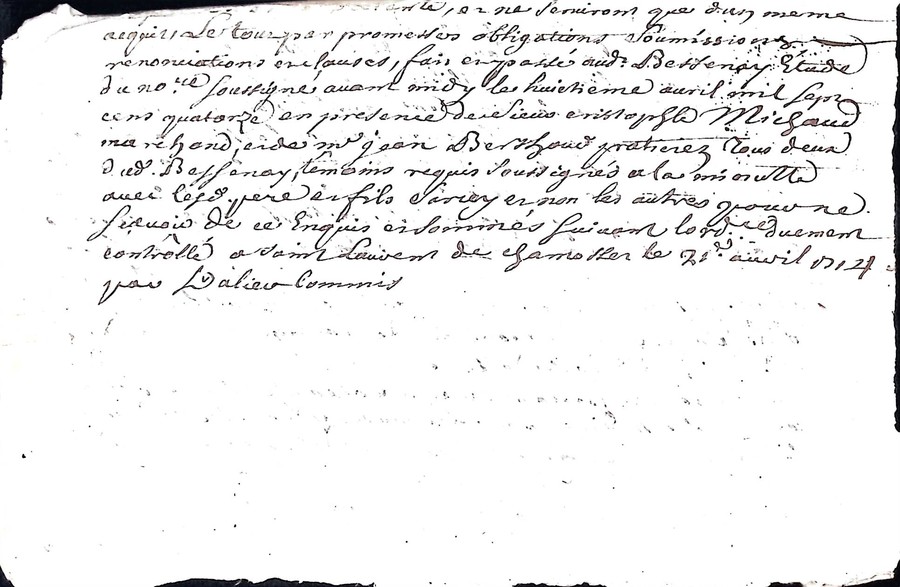 et ne serviront que d'un meme
acquit, Le tout par promesses obligations soumissions
renonciations et clauses, fait et passé aud.t Bessenay Etude
du no.re soussigné avant midy le huictieme avril mil sept
cens quatorze en presence de sieur cristophle Michaud
marchand, et de m.e jean Berthaud praticien tous deux
dud. Bessenay, temoins requis soussignés a la minutte
avec lesd. pere et fils et non les autres pour ne
sçavoir de ce Enquis et sommés suivant lord.ce duement
contrôllé a saint Laurent de chamosset le 21.e avril 1714
par Dalieu Commis